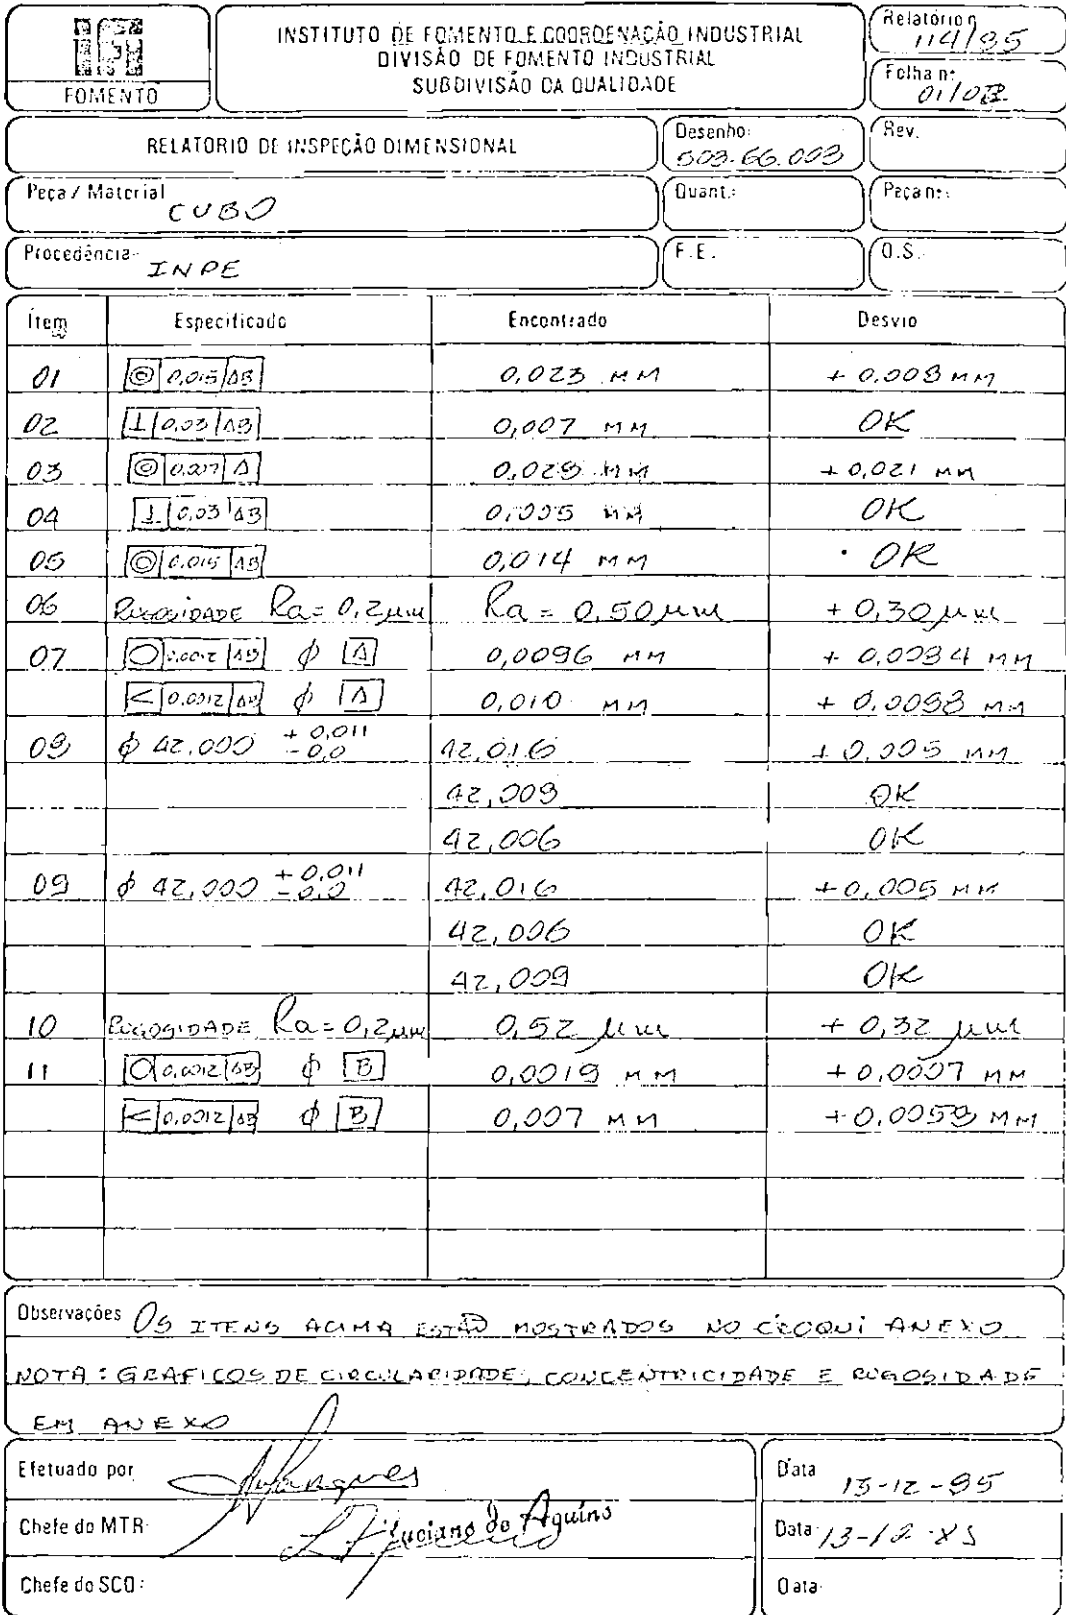 IFI
FOMENTO
INSTITUTO DE FOMENTO E COORDENAÇÃO INDUSTRIAL
DIVISÃO DE FOMENTO INDUSTRIAL
SUBDIVISÃO DA QUALIDADE
Relatório n
114/95
Folha nº
01/02
RELATORIO DE INSPEÇÃO DIMENSIONAL
Desenho: 503-66.003
Rev.
Peça / Material CUBO
Quant.:
Peça nº:
Procedência: INPE
F.E.
O.S.
Ítem Especificado Encontrado Desvio
01 ◎ 0,015 AB 0,023 MM + 0.008 MM
02 ⊥ 0,03 AB 0,007 MM OK
03 ◎ 0,007 A 0,028 MM + 0,021 MM
04 ⊥ 0,03 AB 0,005 MM OK
05 ◎ 0,015 AB 0,014 MM OK
06 RUGOSIDADE Ra = 0,2 µm Ra = 0,50 µm + 0,30 µm
07 ○ 0,0012 AB ϕ A 0,0096 MM + 0,0084 MM
< 0,0012 AB ϕ A 0,010 MM + 0,0088 MM
08 ϕ 42,000 + 0,011 - 0,0 42,016 + 0,005 MM
42,008 OK
42,006 OK
09 ϕ 42,000 + 0,011 - 0,0 42,016 + 0,005 MM
42,006 OK
42,009 OK
10 RUGOSIDADE Ra = 0,2 µm 0,52 µm + 0,32 µm
11 ○ 0,0012 AB ϕ B 0,0019 MM + 0,0007 MM
< 0,0012 AB ϕ B 0,007 MM + 0,0058 MM
Observações OS ITENS ACIMA ESTÃO MOSTRADOS NO CROQUI ANEXO
NOTA: GRAFICOS DE CIRCULARIDADE, CONCENTRICIDADE E RUGOSIDADE
EM ANEXO
Efetuado por
Data 13-12-95
Chefe do MTR: Luciano de Aquino
Data 13-12-95
Chefe do SCO:
Data